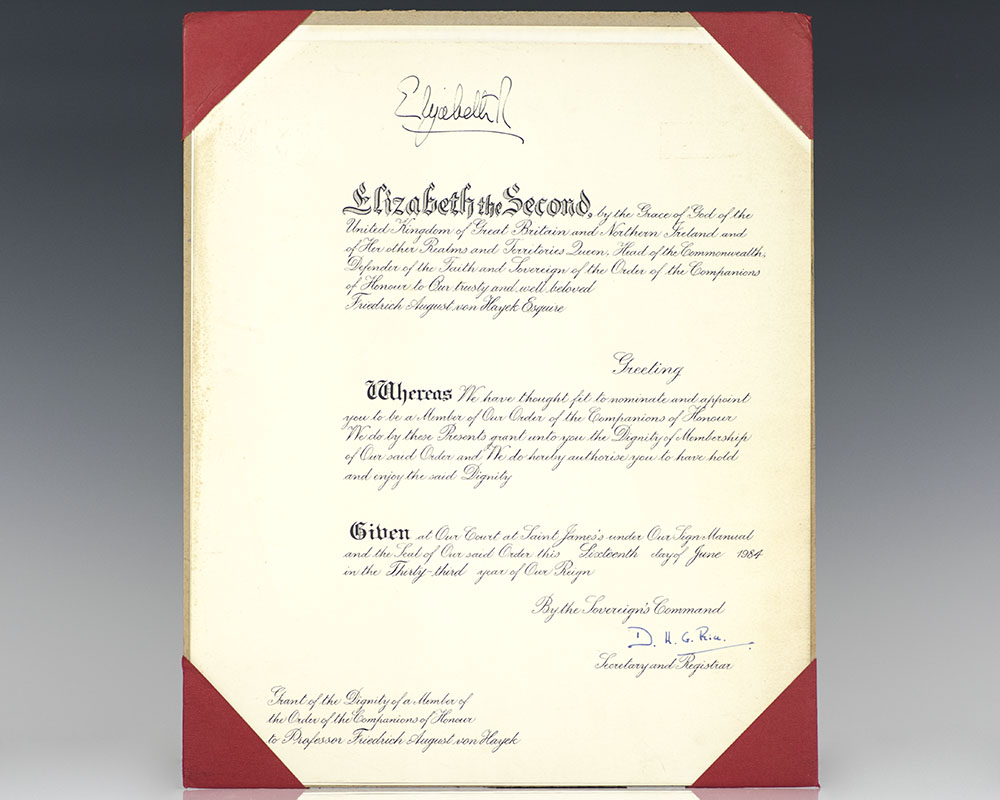 Elizabeth R
Elizabeth the Second, by the Grace of God of the
United Kingdom of Great Britain and Northern Ireland and
of Her other Realms and Territories Queen, Head of the Commonwealth,
Defender of the Faith and Sovereign of the Order of the Companions
of Honour to Our trusty and well beloved
Friedrich August von Hayek Esquire
Greeting
Whereas We have thought fit to nominate and appoint
you to be a Member of Our Order of the Companions of Honour
We do by these Presents grant unto you the Dignity of Membership
of Our said Order and We do hereby authorise you to have hold
and enjoy the said Dignity
Given at Our Court at Saint James's under Our Sign Manual
and the Seal of Our said Order this Sixteenth day of June 1984
in the Thirty-third year of Our Reign
By the Sovereign's Command
D. H. G. Rice.
Secretary and Registrar
Grant of the Dignity of a Member of
the Order of the Companions of Honour
to Professor Friedrich August von Hayek